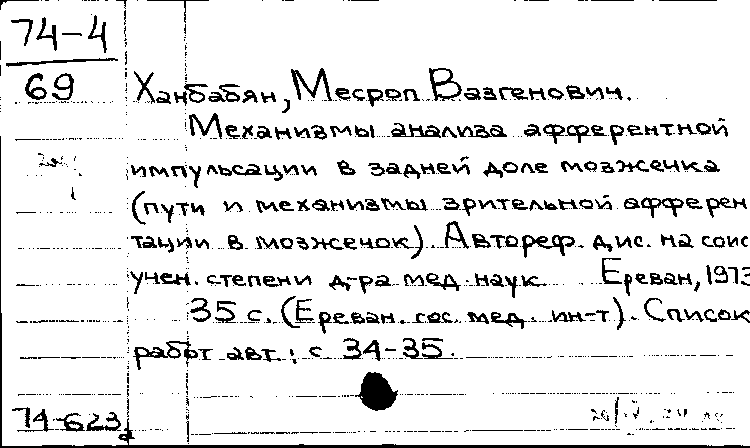 74-4
69
Ханбабян, Месроп Вазгенович.
Механизмы анализа афферентной
импульсации в задней доле мозжечка
(пути и механизмы зрительной афферен
тации в мозжечок). Автореф. дис. на соис
учен. степени д-ра мед. наук. Ереван, 1973
35 с. (Ереван. гос. мед. ин-т). Список
работ авт.: с 34-35.
74-623